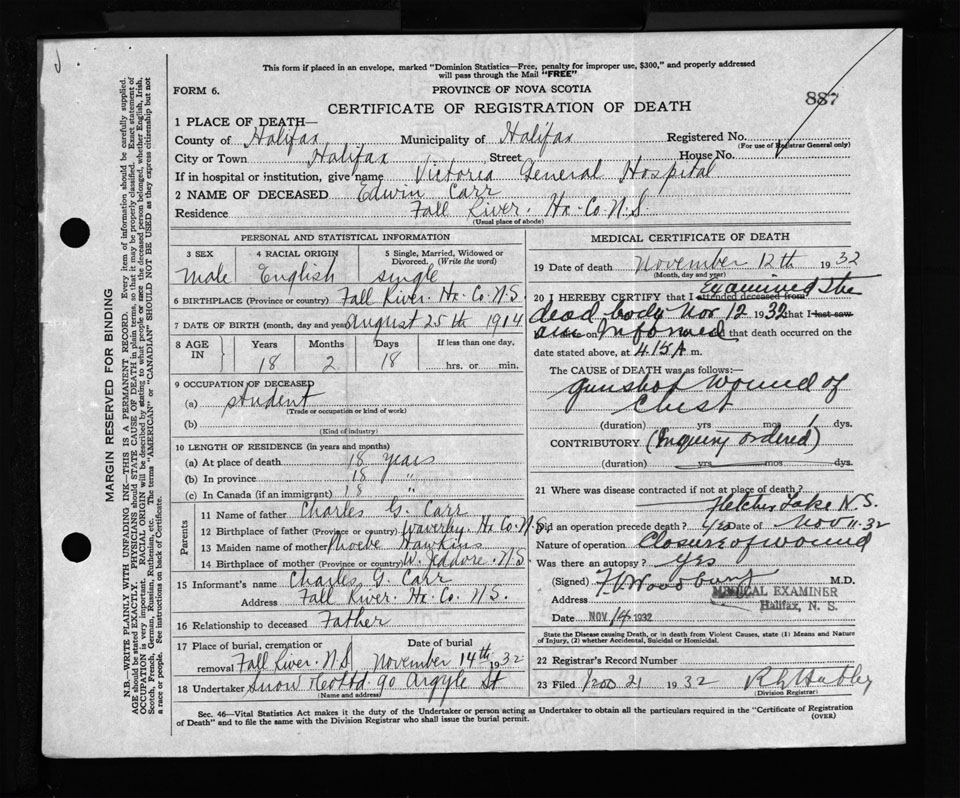 This form if placed in an envelope, marked "Dominion Statistics—Free, penalty for improper use, $300," and properly addressed
will pass through the Mail "FREE"
FORM 6.
PROVINCE OF NOVA SCOTIA
887
CERTIFICATE OF REGISTRATION OF DEATH
1 PLACE OF DEATH—
County of Halifax Municipality of Halifax Registered No.
(For use of Registrar General only)
City or Town Halifax Street House No.
If in hospital or institution, give name Victoria General Hospital
2 NAME OF DECEASED Edwin Carr
Residence Fall River. Hx. Co. N.S.
(Usual place of abode)
PERSONAL AND STATISTICAL INFORMATION
3 SEX 4 RACIAL ORIGIN 5 Single, Married, Widowed or
Divorced. (Write the word)
Male English Single
6 BIRTHPLACE (Province or country) Fall River. Hx. Co. N.S.
7 DATE OF BIRTH (month, day and year) August 25th 1914
8 AGE IN Years Months Days If less than one day,
18 2 18 hrs. or min.
9 OCCUPATION OF DECEASED
(a) Student
(Trade or occupation or kind of work)
(b)
(Kind of industry)
10 LENGTH OF RESIDENCE (in years and months)
(a) At place of death 18 years
(b) In province 18 "
(c) In Canada (if an immigrant) 18 "
Parents
11 Name of father Charles G. Carr
12 Birthplace of father (Province or country) Waverley. Hx. Co. N.S.
13 Maiden name of mother Phoebe Hawkins
14 Birthplace of mother (Province or country) W. Jeddore. N.S.
15 Informant's name Charles G. Carr
Address Fall River. Hx. Co. N.S.
16 Relationship to deceased Father
17 Place of burial, cremation or Date of burial
removal Fall River. N.S. November 14th 1932
18 Undertaker Snow & Co Ltd 90 Argyle St
(Name and address)
MEDICAL CERTIFICATE OF DEATH
19 Date of death November 12th 1932
(Month, day and year)
20 I HEREBY CERTIFY that I attended deceased from Examined the
dead body Nov 12 1932 that I last saw
am Informed that death occurred on the
date stated above, at 4.15 A m.
The CAUSE of DEATH was as follows:—
Gunshot wound of
Chest
(duration) yrs mos. 1 dys.
CONTRIBUTORY (Inquiry ordered)
(duration) yrs mos dys.
21 Where was disease contracted if not at place of death?
Fletcher Lake N.S.
Did an operation precede death? Yes Date of Nov 11-32
Nature of operation Closure of wound
Was there an autopsy? Yes
(Signed) F.V. Woodbury M.D.
Address MEDICAL EXAMINER
Halifax, N. S.
Date NOV 14 1932
State the Disease causing Death, or in death from Violent Causes, state (1) Means and Nature
of Injury, (2) whether Accidental, Suicidal or Homicidal.
22 Registrar's Record Number
23 Filed 21 1932
(Division Registrar)
Sec. 46—Vital Statistics Act makes it the duty of the Undertaker or person acting as Undertaker to obtain all the particulars required in the "Certificate of Registration
of Death" and to file the same with the Division Registrar who shall issue the burial permit.
(OVER)
MARGIN RESERVED FOR BINDING
N.B.—WRITE PLAINLY WITH UNFADING INK—THIS IS A PERMANENT RECORD. Every item of information should be carefully supplied.
AGE should be stated EXACTLY. PHYSICIANS should STATE CAUSE OF DEATH in plain terms, so that it may be properly classified. Exact statement of
OCCUPATION is very important. RACIAL ORIGIN will be described by stating to what people or race the deceased person belonged, whether English, Irish,
Scotch, French, German, Russian, Ruthenian, etc. The terms "AMERICAN" or "CANADIAN" SHOULD NOT BE USED as they express citizenship but not
a race or people. See instructions on back of Certificate.